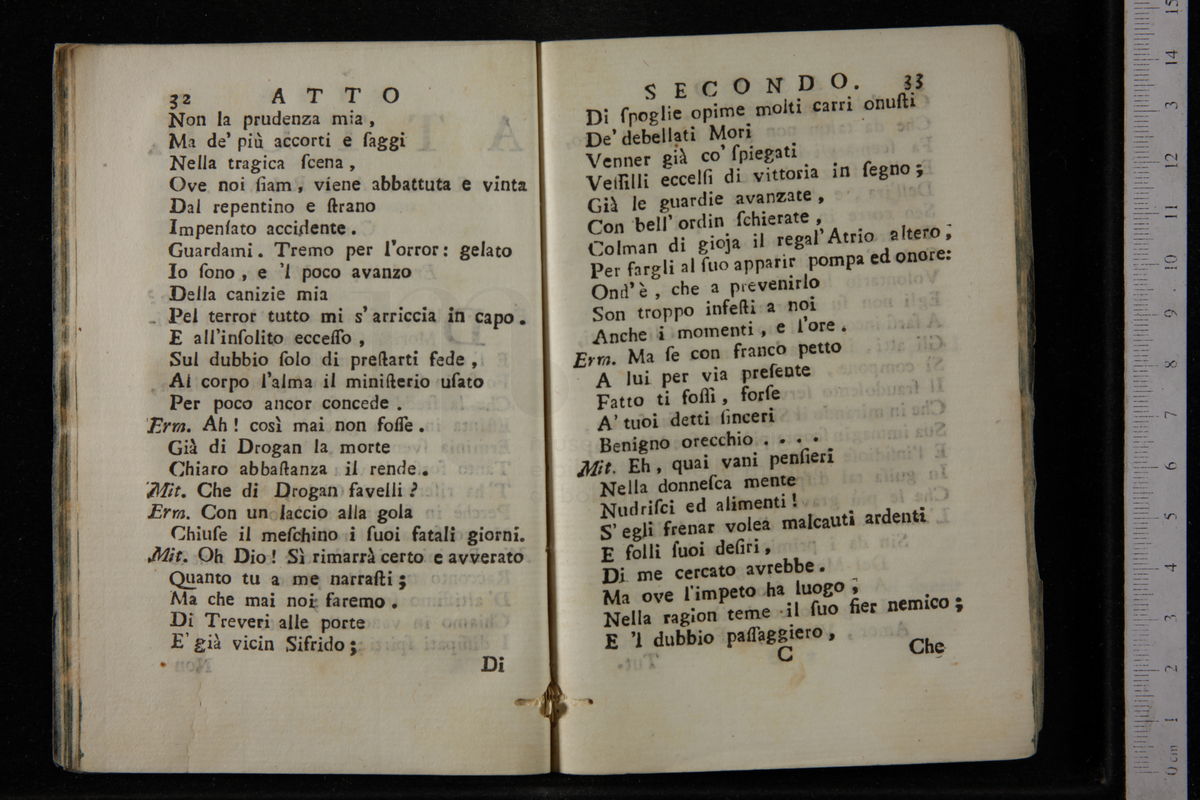 32 ATTO
Non la prudenza mia,
Ma de' più accorti e ſaggi
Nella tragica ſcena,
Ove noi ſiam, viene abbattuta e vinta
Dal repentino e ſtrano
Impenſato accidente.
Guardami. Tremo per l'orror: gelato
Io ſono, e 'l poco avanzo
Della canizie mia
Pel terror tutto mi s'arriccia in capo.
E all'inſolito ecceſſo,
Sul dubbio ſolo di preſtarti fede,
Al corpo l'alma il miniſterio uſato
Per poco ancor concede.
Erm. Ah! così mai non foſſe.
Già di Drogan la morte
Chiaro abbaſtanza il rende.
Mit. Che di Drogan favelli?
Erm. Con un laccio alla gola
Chiuſe il meſchino i ſuoi fatali giorni.
Mit. Oh Dio! Sì rimarrà certo e avverato
Quanto tu a me narraſti;
Ma che mai noi faremo.
Di Treveri alle porte
E' già vicin Sifrido;
Di
SECONDO. 33
Di ſpoglie opime molti carri onuſti
De' debellati Mori
Venner già co' ſpiegati
Veſſilli eccelſi di vittoria in ſegno;
Già le guardie avanzate,
Con bell' ordin ſchierate,
Colman di gioja il regal' Atrio altero;
Per fargli al ſuo apparir pompa ed onore:
Ond' è, che a prevenirlo
Son troppo infeſti a noi
Anche i momenti, e l'ore.
Erm. Ma ſe con franco petto
A lui per via preſente
Fatto ti foſſi, forſe
A' tuoi detti ſinceri
Benigno orecchio . . . .
Mit. Eh, quai vani penſieri
Nella donneſca mente
Nudriſci ed alimenti!
S' egli frenar volea malcauti ardenti
E folli ſuoi deſiri,
Di me cercato avrebbe.
Ma ove l'impeto ha luogo;
Nella ragion teme il ſuo fier nemico;
E 'l dubbio paſſaggiero,
C Che
0 cm 1 2 3 4 5 6 7 8 9 10 11 12 13 14 15